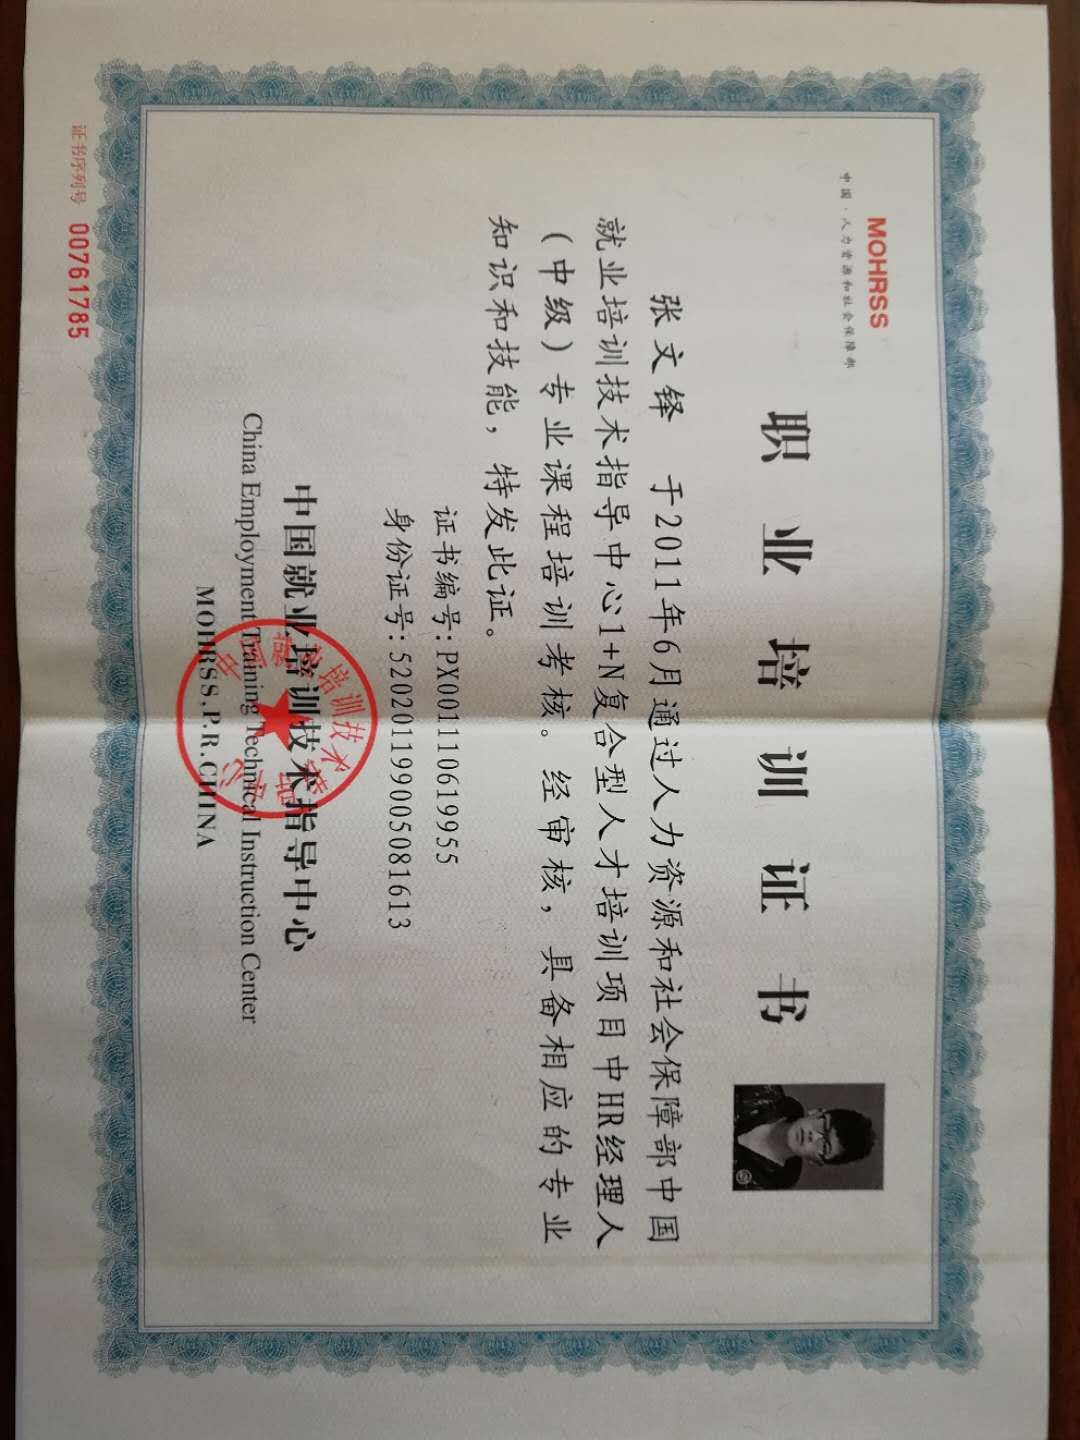 MOHRSS
中国·人力资源和社会保障部
职业培训证书
张文铎 于2011年6月通过人力资源和社会保障部中国
就业培训技术指导中心1+N复合型人才培训项目中HR经理人
（中级）专业课程培训考核。经审核，具备相应的专业
知识和技能，特发此证。
证书编号:PX001110619955
身份证号:520201199005081613
中国就业培训技术指导中心
China Employment Training Technical Instruction Center
MOHRSS.P.R.CHINA
证书序列号 00761785